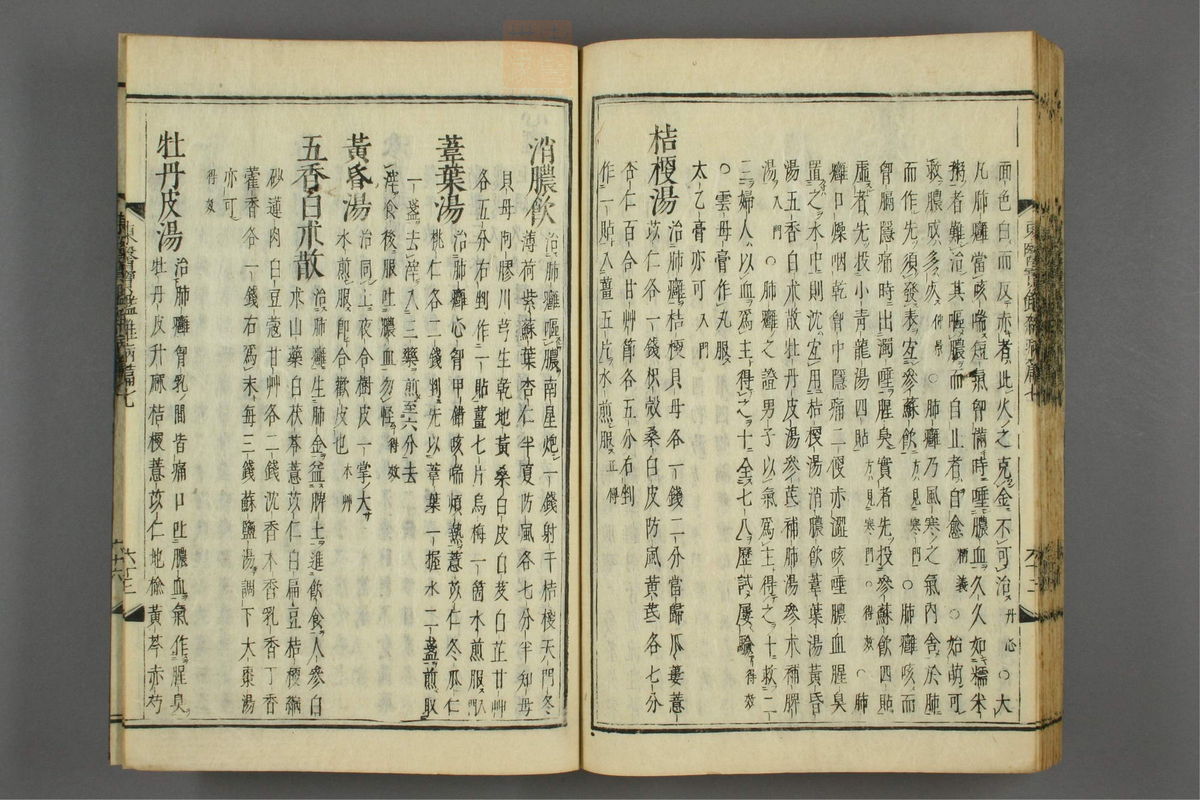 面色白而反赤者此火之克金不可治丹心○大
凡肺癰當咳喘短氣胷滿時唾膿血久久如糯米
粥者難治其嘔膿而自止者自愈精義○始萌可
救膿成多死仲景○肺癰乃風寒之氣內舍於肺
而作先須發表宜參蘇飮方見寒門○肺癰咳而
胷膈隱痛時出濁唾腥臭實者先投參蘇飮四貼
虛者先投小青龍湯四貼方見寒門得效○肺
癰口燥咽乾胷中隱痛二便亦澀咳唾膿血腥臭
置之水中則沈宜用桔梗湯消膿飮葦葉湯黃昏
湯五香白朮散牡丹皮湯參芪補肺湯參朮補脾
湯入門○肺癰之證男子以氣爲主得之十救二
三婦人以血爲主得之十全七八歷試屢驗得效
○雲母膏作丸服
太乙膏亦可入門
桔梗湯 治肺癰桔梗貝母各一錢二分當歸瓜蔞薏
苡仁各一錢枳殼桑白皮防風黃芪各七分
杏仁百合甘艸節各五分右剉
作一貼入薑五片水煎服正傳
消膿飮 治肺癰嘔膿南星炮一錢射干桔梗天門冬
薄荷紫蘇葉杏仁半夏防風各七分半知母
貝母阿膠川芎生乾地黃桑白皮白芨白芷甘艸
各五分右剉作一貼薑七片烏梅一箇水煎服入門
葦葉湯 治肺癰心胷甲錯咳喘煩熱薏苡仁冬瓜仁
桃仁各二錢剉先以葦葉一握水二盞煎取
一盞去滓入三藥煎至六分去
滓食後服吐膿血勿怪得效
黃昏湯 治同上夜合樹皮一掌大
水煎服卽合歡皮也本艸
五香白朮散 治肺癰生肺金益脾土進飮食人參白
朮山藥白茯苓薏苡仁白扁豆桔梗縮
砂蓮肉白豆蔲甘艸各二錢沈香木香乳香丁香
藿香各一錢右爲末每三錢蘇鹽湯調下大棗湯
亦可得效
牡丹皮湯 治肺癰胷乳間皆痛口吐膿血氣作腥臭
牡丹皮升麻桔梗薏苡仁地楡黃芩赤芍